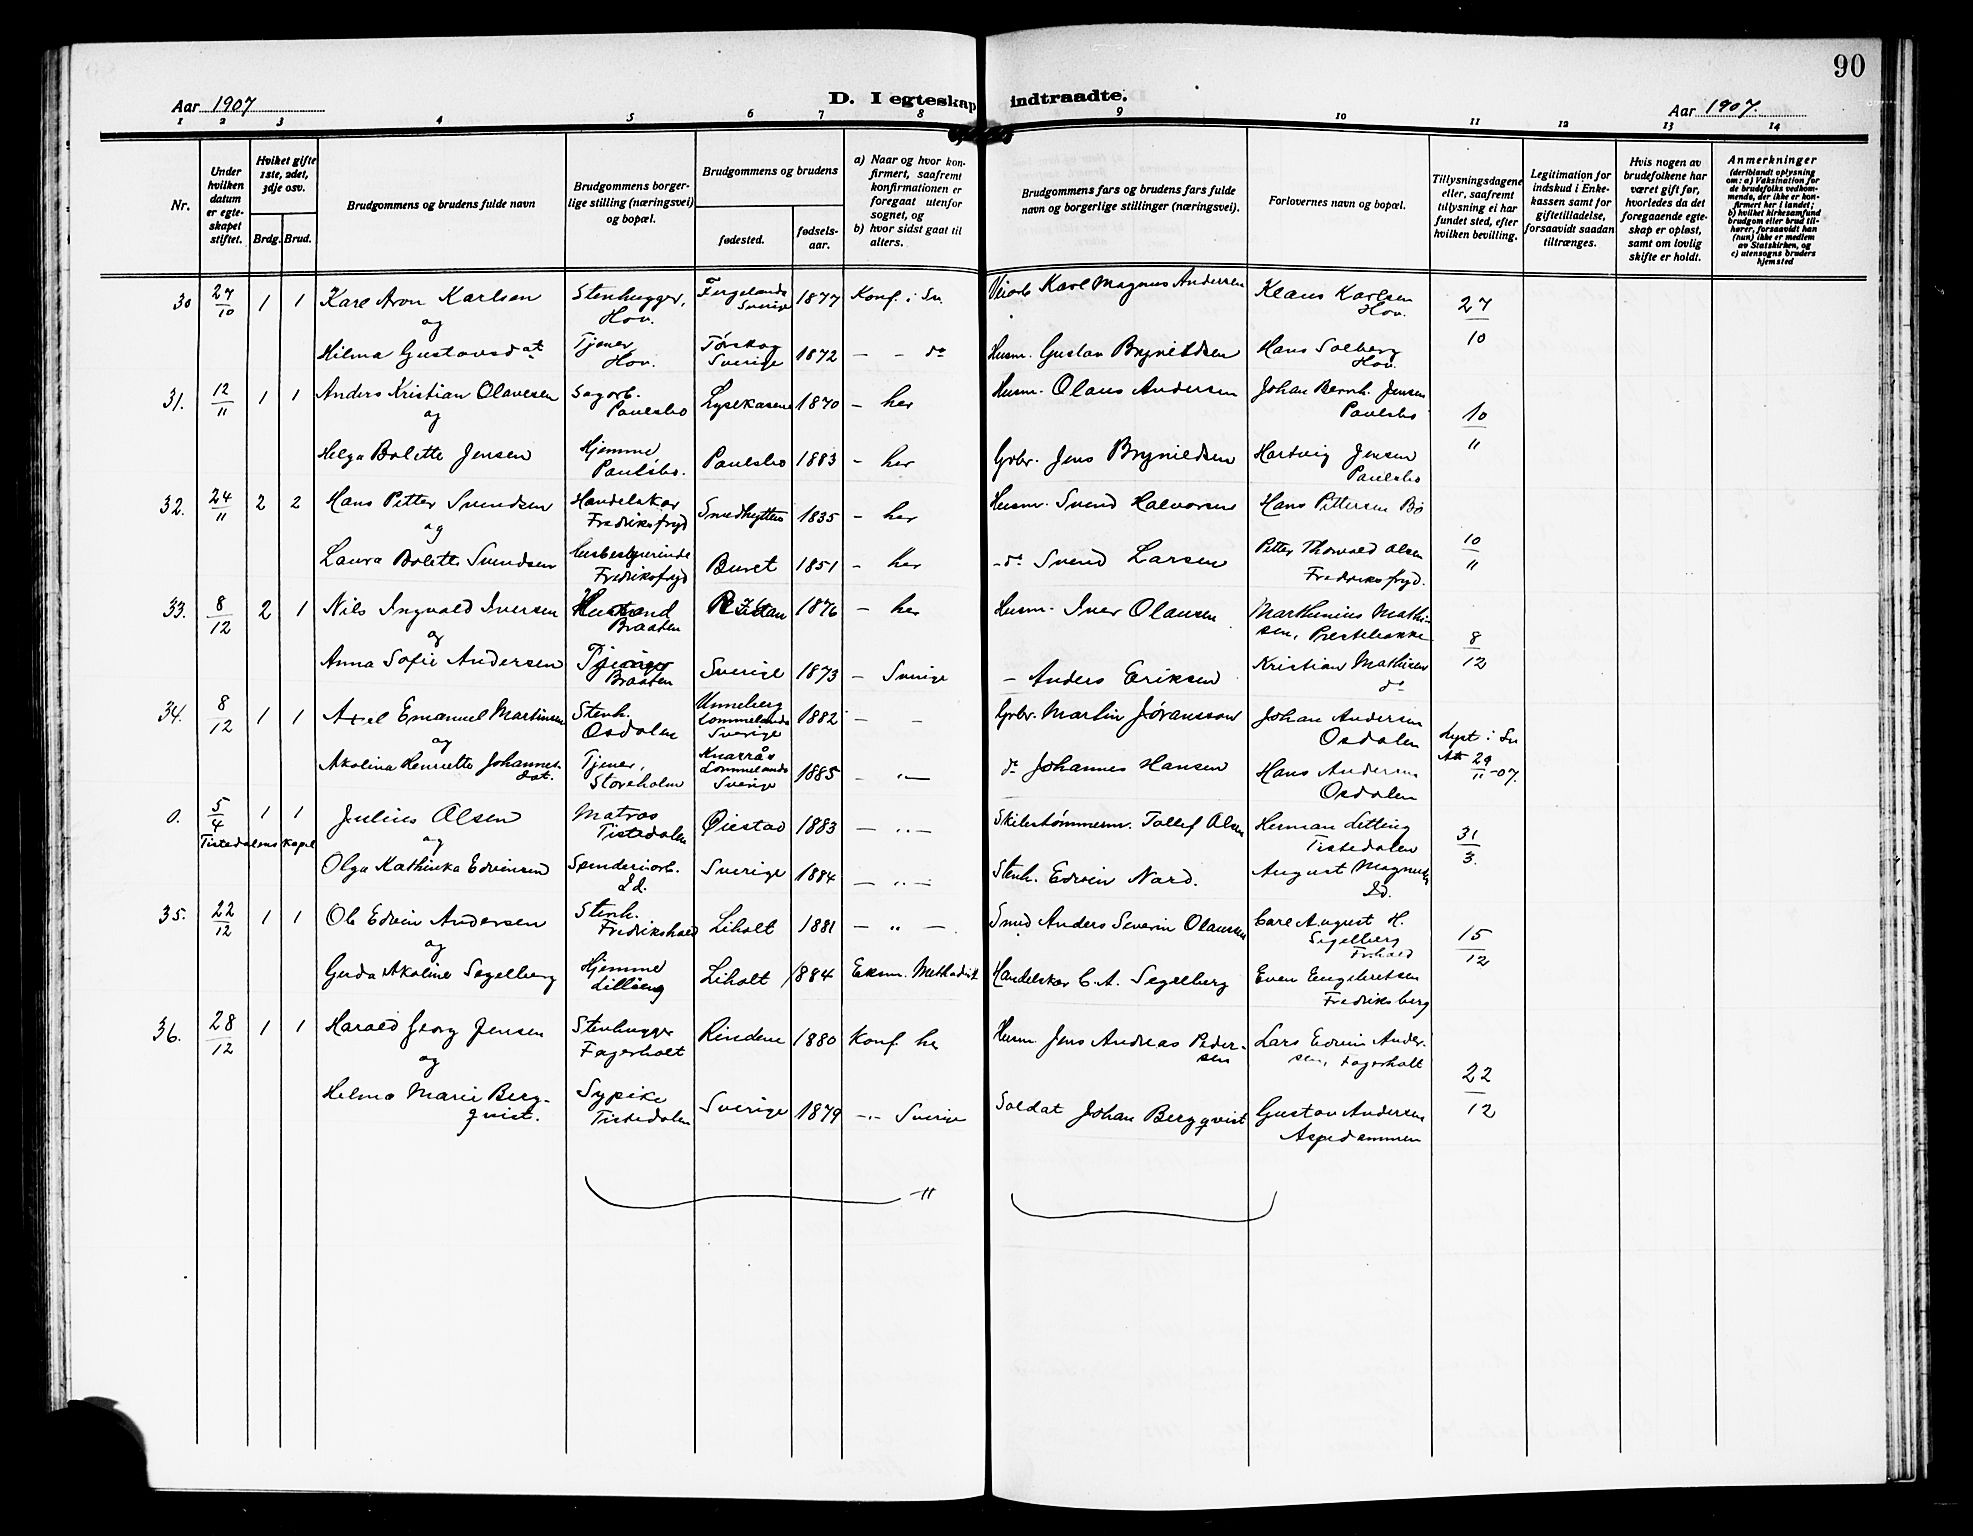 90
Aar 1907 D. I egteskap indtraadte. Aar 1907.
1 2 3 4 5 6 7 8 9 10 11 12 13 14
Nr.
Under hvilken datum er egteskapet stiftet.
Hvilket gifte 1ste, 2det, 3dje osv.
Brdg. Brud.
Brudgommens og brudens fulde navn
Brudgommens borgerlige stilling (næringsvei) og bopæl.
Brudgommens og brudens
fødested. fødselsaar.
a) Naar og hvor konfirmert, saafremt konfirmationen er foregaat utenfor sognet, og
b) hvor sidst gaat til alters.
Brudgommens fars og brudens fars fulde navn og borgerlige stillinger (næringsvei).
Forlovernes navn og bopæl.
Tillysningsdagene eller, saafremt tillysning ei har fundet sted, efter hvilken bevilling.
Legitimation for indskud i Enkekassen samt for giftetilladelse, forsaavidt saadan tiltrænges.
Hvis nogen av brudefolkene har været gift før, hvorledes da det foregaaende egteskap er opløst, samt om lovlig skifte er holdt.
Anmerkninger (deriblandt oplysning om: a) Vaksination for de brudefolks vedkommende, der ikke er konfirmert her i landet; b) hvilket kirkesamfund brudgom eller brud tilhører, forsaavidt han (hun) ikke er medlem av Statskirken, og c) utensogns bruders hjemsted
30 27/10 1 1 Karl Aron Karlsen Stenhugger, Hov. Sverige 1877 Konf. i Sv. Karl Magnus Andersen Klaus Karlsen Hov. 27/10
og
Hilma Gustavsdat Tjener Hov. Tørskog Sverige 1872 – – do Husm. Gustav Brynildsen Hans Solberg Hov.
31. 12/11 1 1 Anders Kristian Olavesen Sagarb. Paulsbo Lysekasene 1870 – her Husm. Olaus Andersen Johan Bernh. Jensen Paulsbo 10/11
og
Helga Bolette Jensen Hjemme Paulsbo. Paulsbo 1883 – her Grbr. Jens Brynildsen Hartvig Jensen Paulsbo
32. 24/11 2 2 Hans Petter Svendsen Handelskar Fredriksfryd Smedhytten 1835 – her Husm. Svend Halvorsen Hans Pettersen Bö 10/11
og
Laura Bolette Svendsen Husbestyrerinde Fredriksfryd Buret 1851 – her – do Svend Larsen Petter Thorvald Olsen Fredriksfryd.
33. 8/12 2 1 Nils Ingvald Iversen Husmand Braaten 1876 – her Husm. Iver Olausen Marthinius Mathisen, Presteløkke 8/12
og
Anna Sofie Andersen Braaten Sverige 1873 – Sverige – Anders Eriksen Kristian Mathisen do
34. 8/12 1 1 Axel Emanuel Martinsen Stenh. Osdalen Unneberg Lommelands Sverige 1882 – – Grbr. Martin Jøransson Johan Andersen Osdalen Lyst i Sv. Att 29/11 -07.
og
Akolina Henriette Johannesdat. Tjener, Storeholm Knarrås Lommelands Sverige 1885 – „ – do Johannes Hansen Hans Andersen Osdalen
0. 5/4 1 1 Julius Olsen Matros Tistedalen Øiestad 1883 – „ – Skibstømmerm. Tollef Olsen Herman Letting Tistedalen 31/3.
Tistedalens Kapel og
Olga Kathinka Edvinsen Spinderiarb. Id. Sverige 1884 – „ – Stenh. Edvin Nord. August Magnus Id.
35. 22/12 1 1 Ole Edvin Andersen Stenh. Fredrikshald Liholt 1881 – „ – Smed Anders Severin Olaussen Carl August H. Segelberg Frhald 15/12
og
Gerda Akoline Segelberg Hjemme Lilleeng Liholt 1884 Eksm. Methodist Handelskar C. A. Segelberg Even Engebretsen Fredriksberg
36. 28/12 1 1 Harald Georg Jensen Stenhugger Fagerholt Rindene 1880 Konf. her Husm. Jens Andreas Pedersen Lars Edvin Andersen, Fagerholt 22/12
og
Helma Marie Bergqvist. Sypike Tistedalen Sverige 1879 – „ – Sverige Soldat Johan Bergqvist Gustav Andersen Aspedammen